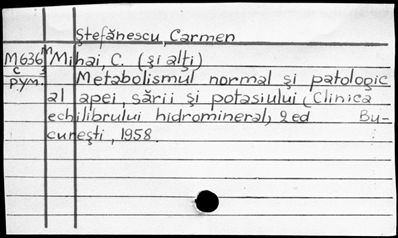 Ştefănescu, Carmen
M636 M Mihai, C. (şi alţi)
c 3
p.y.m. Metabolismul normal şi patologic
al apei, sării şi potasiului (Clinica
echilibrului hidromineral) 2 ed Bu-
cureşti, 1958.